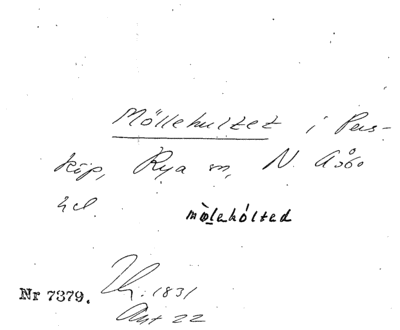 Möllehultet i Pers-
köp, Rya sn, N. Åsbo
hd.
mö̀lehólted
Nr 7379.
1831
Akt 22